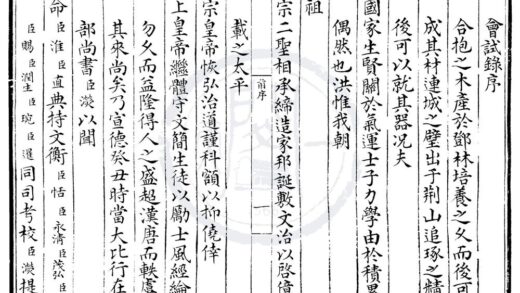 會試錄序
合抱之木產於鄧林培養之久而後可
成其材連城之璧出于荆山追琢之精
後可以就其器况夫
國家生賢關於氣運士子力學由於積累
偶然也洪惟我朝
祖
宗二聖相承締造家邦誕敷文治以啓億
前序 一
載之太平
宗皇帝恢弘治道謹科額以抑僥倖
上皇帝繼體守文簡生徒以勵士風經綸
勿久而益隆得人之盛超漢唐而軼虞
其來尚矣乃宣德癸丑時當大比行在
部尚書臣濙以聞
命臣淮臣直典持文衡臣恬臣永清臣茂弘臣
臣賜臣潤生臣琬臣暹同司考校臣濙提